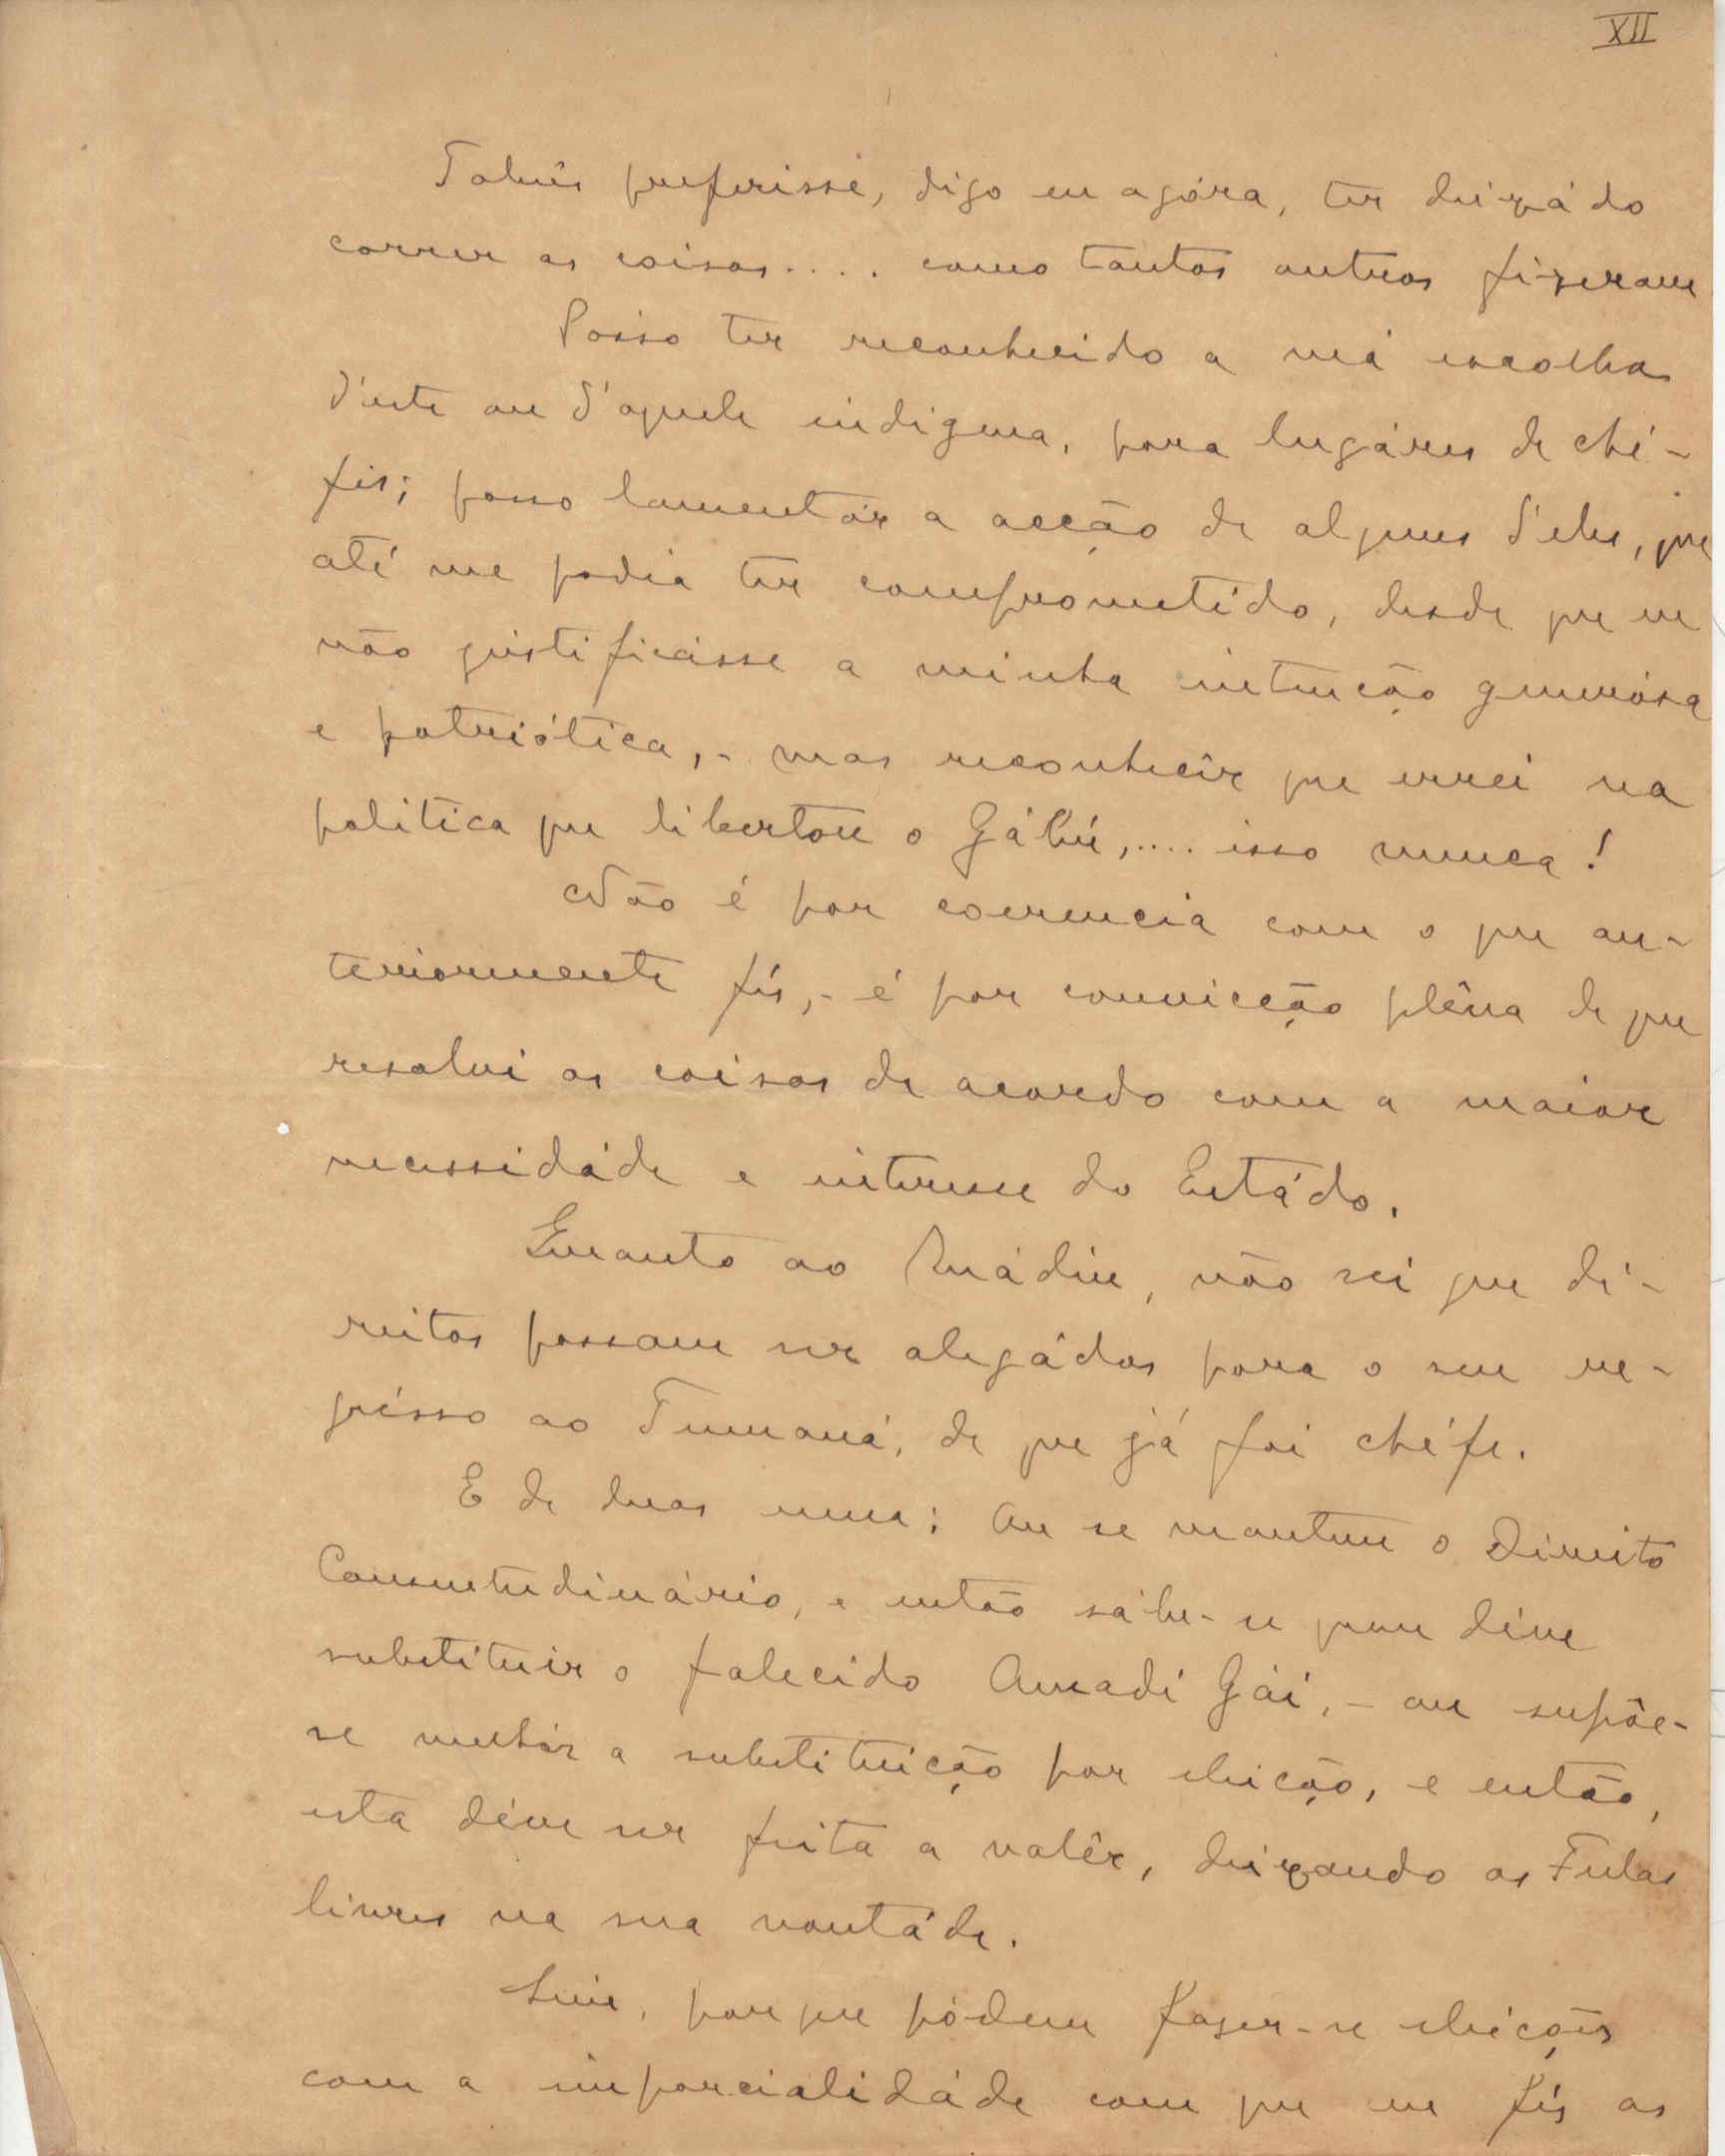 XII
Talvês preferisse, digo eu agóra, ter deixádo
correr as coisas.... como tantos outros fizeram
Posso ter reconhecido a má escolha
d'este ou d'aquele indigena, para lugáres de ché-
fes; posso lamentár a acção de alguns d'eles, que
até me podia ter comprometido, desde que eu
não justificásse a minha intenção generósa
e patriótica,- mas reconhecêr que errei na
politica que libertou o Gábú,.... isso nunca!
Não é por coerencia com o que an-
teriormente fís,- é por convicção plêna de que
resolvi as coisas de acordo com a maior
necessidáde e interesse do Estádo.
Enanto ao , não sei que di-
reitos possam ser alegádos para o seu re-
grésso ao Tumaná, de que já foi chéfe.
E de duas uma: Ou se mantem o Direito
Consuetudinário, e então sábe-se quem déve
substituir o falecido Amadi Gái,- ou supõe-
se melhór a substituição por eleição, e então,
esta déve ser feita a valêr, deixando os Fulas
livres na sua vontáde.
Sim, porque pódem fazer-se eleições
com a imparcialidáde com que eu fís as